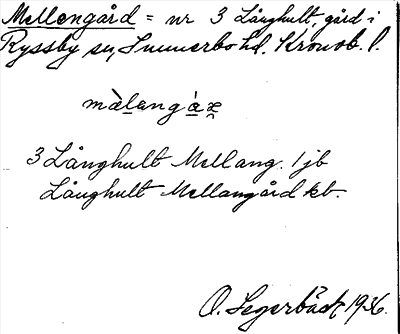 Mellengård = nr 3 Långhult, gård i
Ryssby sn, Sunnerbo hd. Kronob. l.
màlangáæ
3 Långhult Mellang. 1 jb
Långhult Mellangård kb.
O. Segerbäck 1936.